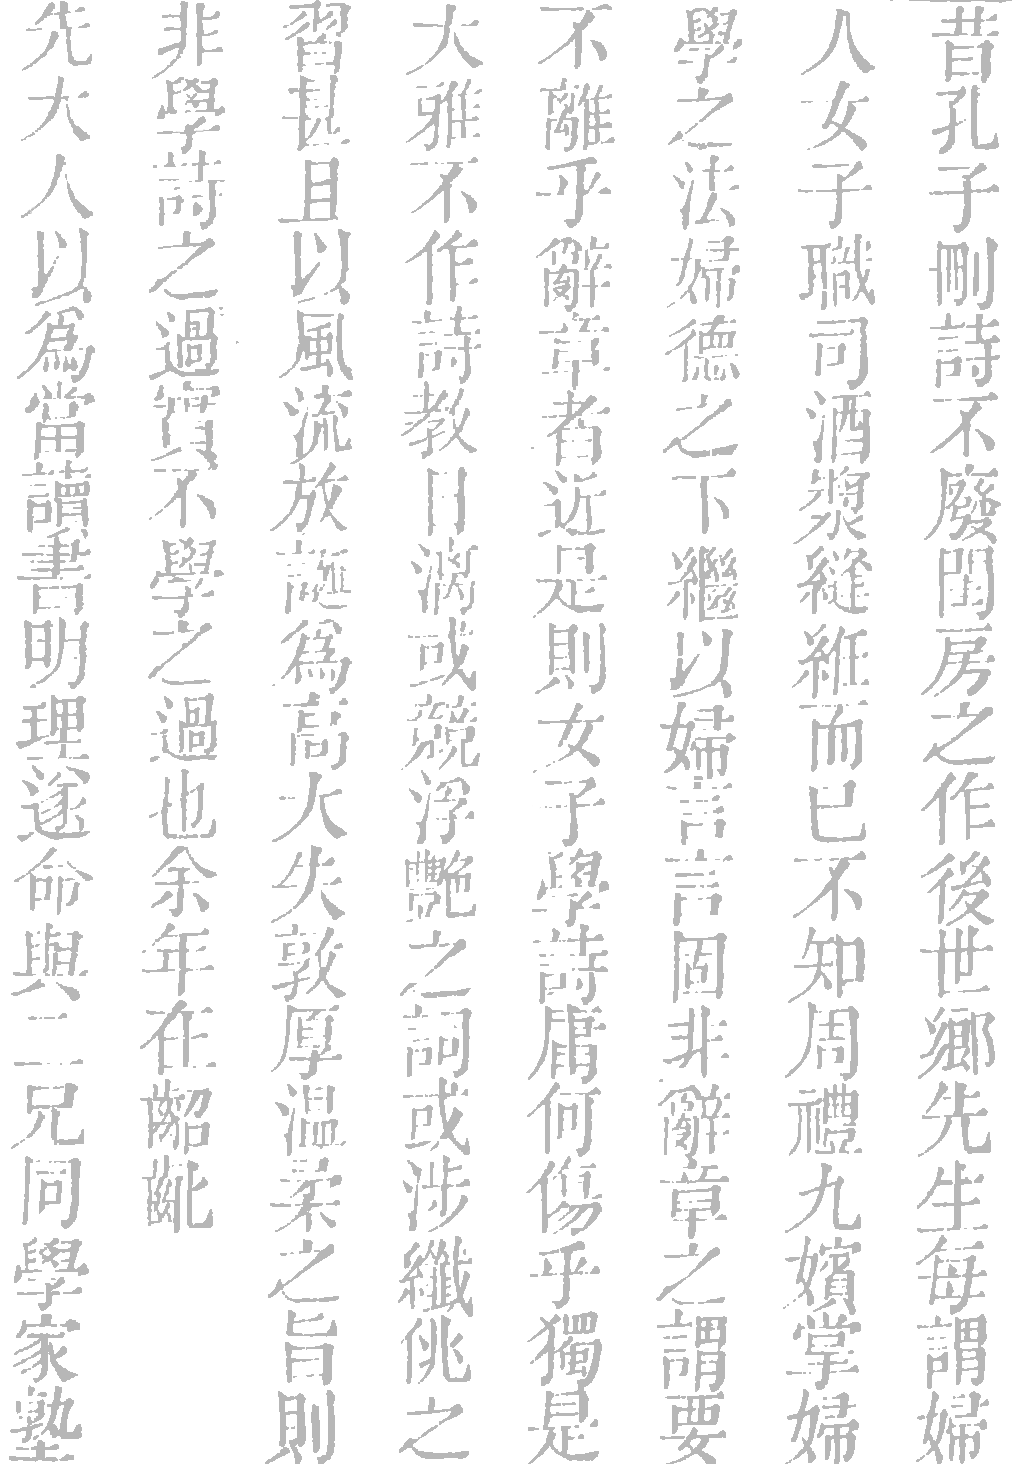 昔孔子刪詩不廢閨房之作後世鄉先生每謂婦
人女子職司酒漿縫紝而已不知周禮九嬪掌婦
學之法婦德之下繼以婦言言固非辭章之謂要
不離乎辭章者近是則女子學詩庸何傷乎獨是
大雅不作詩教日漓或競浮艷之詞或涉纖佻之
習甚且以風流放誕為高大失敦厚温柔之旨則
非學詩之過實不學之過也余年在齠齔
先大人以爲當讀書明理遂命與二兄同學家塾